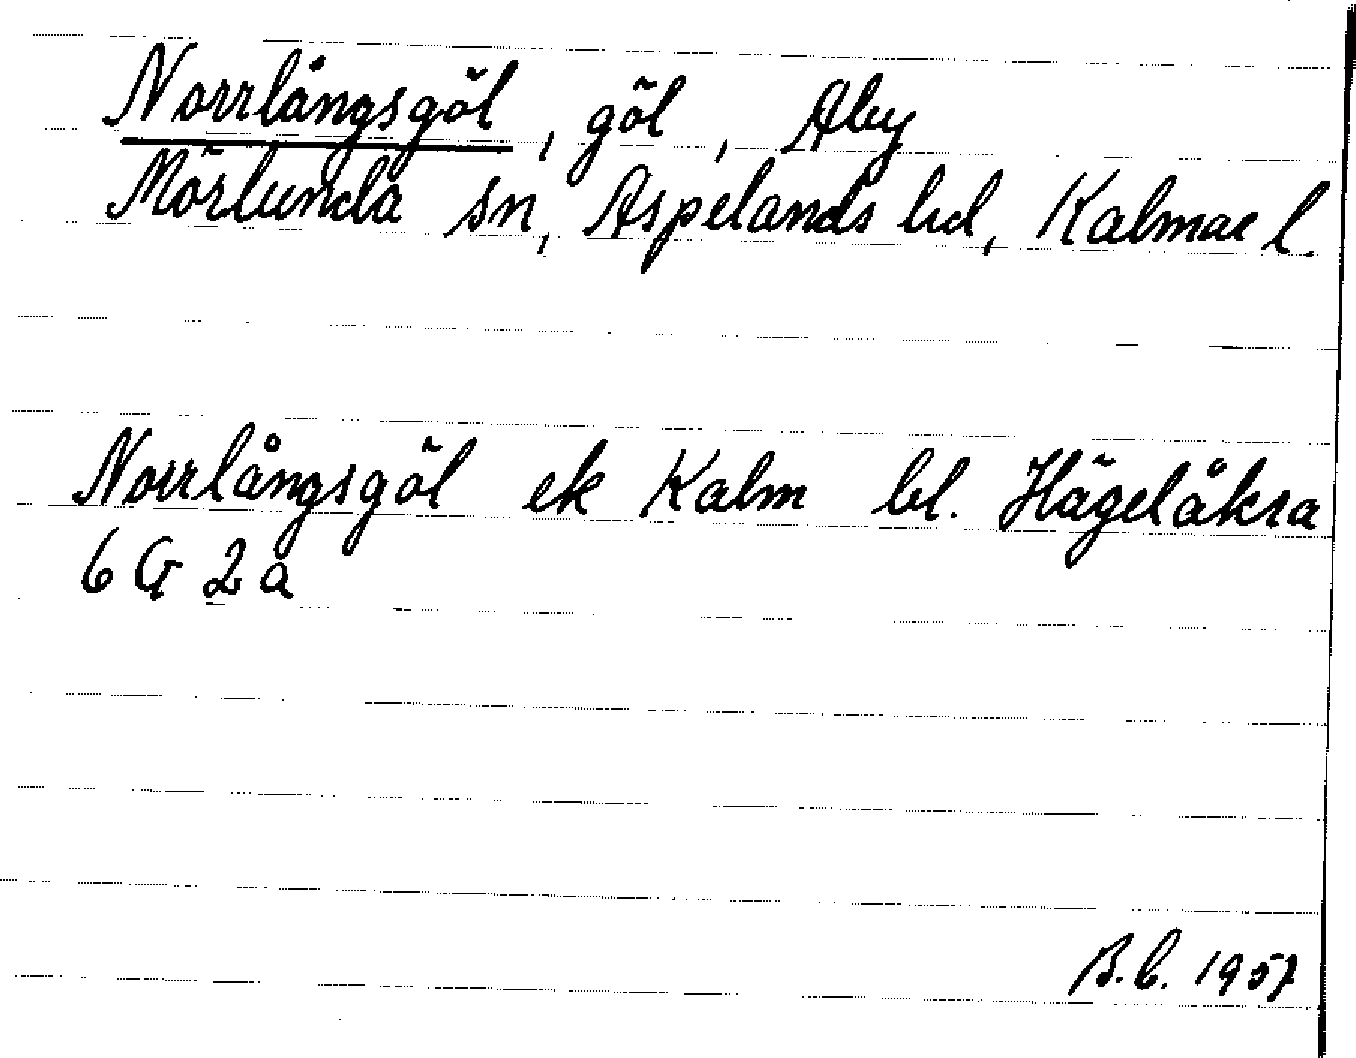 Norrlångsgöl, göl, Åby
Mörlunda sn, Aspelands hd, Kalmar l.
Norrlångsgöl ek Kalm bl. Hägelåkra
6 G 2 a
B.L. 1957